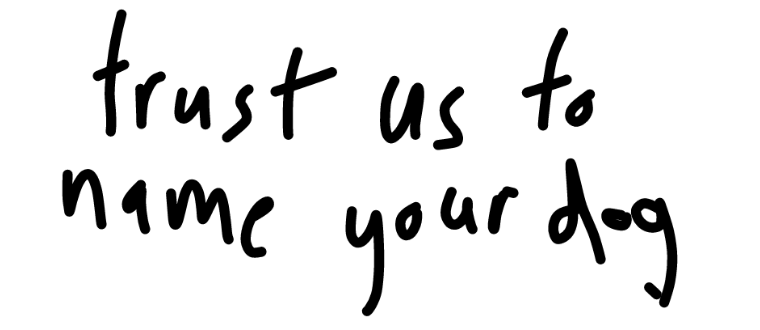 trust us to
name your dog